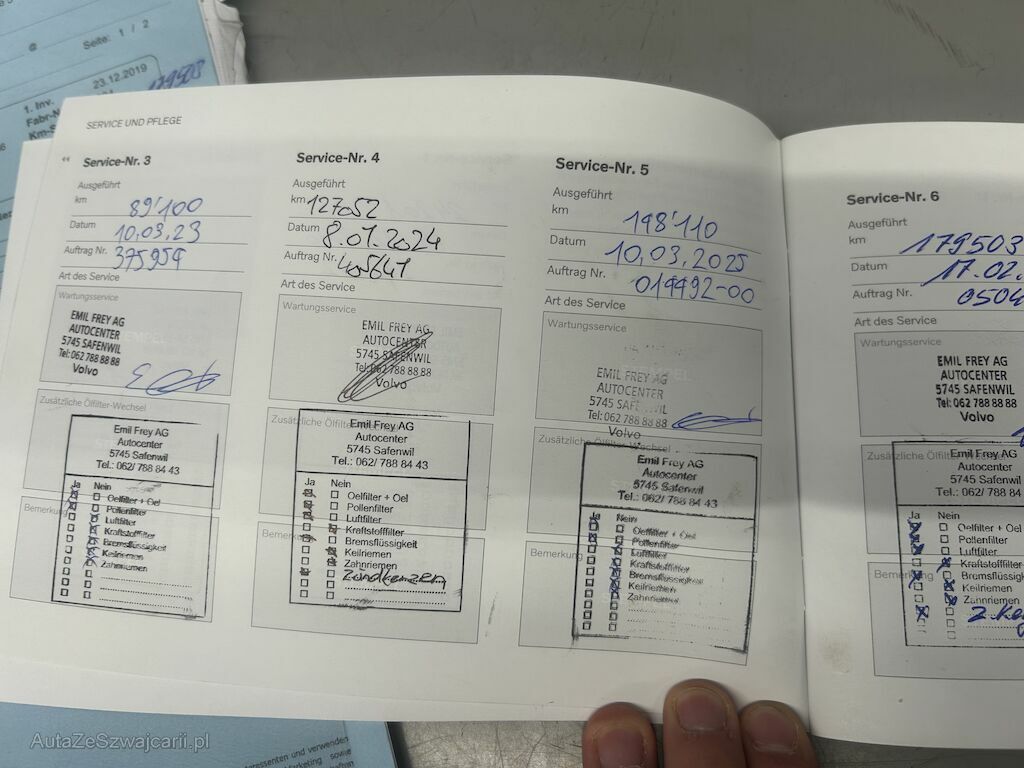 @
Seite: 1 / 2
23.12.2019
179503
1. Inv.
Fabr-N
Km-S
SERVICE UND PFLEGE
Service-Nr. 3
Ausgeführt
km 89'100
Datum 10.03.23
Auftrag Nr. 375959
Art des Service
Wartungsservice
EMIL FREY AG
AUTOCENTER
5745 SAFENWIL
Tel: 062 788 88 88
Volvo
Zusätzliche Ölfilter-Wechsel
Emil Frey AG
Autocenter
5745 Safenwil
Tel.: 062/ 788 84 43
Ja Nein
Oelfilter + Oel
Pollenfilter
Luftfilter
Kraftstofffilter
Bremsflüssigkeit
Keilriemen
Zahnriemen
Bemerkung
Service-Nr. 4
Ausgeführt
km 127052
Datum 8.01.2024
Auftrag Nr. 405641
Art des Service
Wartungsservice
EMIL FREY AG
AUTOCENTER
5745 SAFENWIL
Tel: 062 788 88 88
Volvo
Zusätzliche Ölfil
Emil Frey AG
Autocenter
5745 Safenwil
Tel.: 062/ 788 84 43
Ja Nein
Oelfilter + Oel
Pollenfilter
Luftfilter
Kraftstofffilter
Bremsflüssigkeit
Keilriemen
Zahnriemen
Zündkerzen
Bemerk
Service-Nr. 5
Ausgeführt
km 148'110
Datum 10.03.2025
Auftrag Nr. 019492-00
Art des Service
Wartungsservice
EMIL FREY AG
AUTOCENTER
5745 SAF
Tel: 062 788 88 88
Volvo
Zusätzliche Ölfilter-Wechsel
Emil Frey AG
Autocenter
5745 Safenwil
Tel.: 062/ 788 84 43
Ja Nein
Oelfilter + Oel
Pollenfilter
Luftfilter
Kraftstofffilter
Bremsflüssigkeit
Keilriemen
Zahnriemen
Bemerkung
Service-Nr. 6
Ausgeführt
km 179503
Datum 17.02.
Auftrag Nr. 0504
Art des Service
Wartungsservice
EMIL FREY AG
AUTOCENTER
5745 SAFENWIL
Tel: 062 788 88 88
Volvo
Zusätzliche
Emil Frey AG
Autocenter
5745 Safenwil
Tel.: 062/ 788 84
Ja Nein
Oelfilter + Oel
Pollenfilter
Luftfilter
Kraftstofffilter
Bremsflüssigkeit
Keilriemen
Zahnriemen
Z.Ke
Bemerkung
AutaZeSzwajcarii.pl
eressenten und verwenden